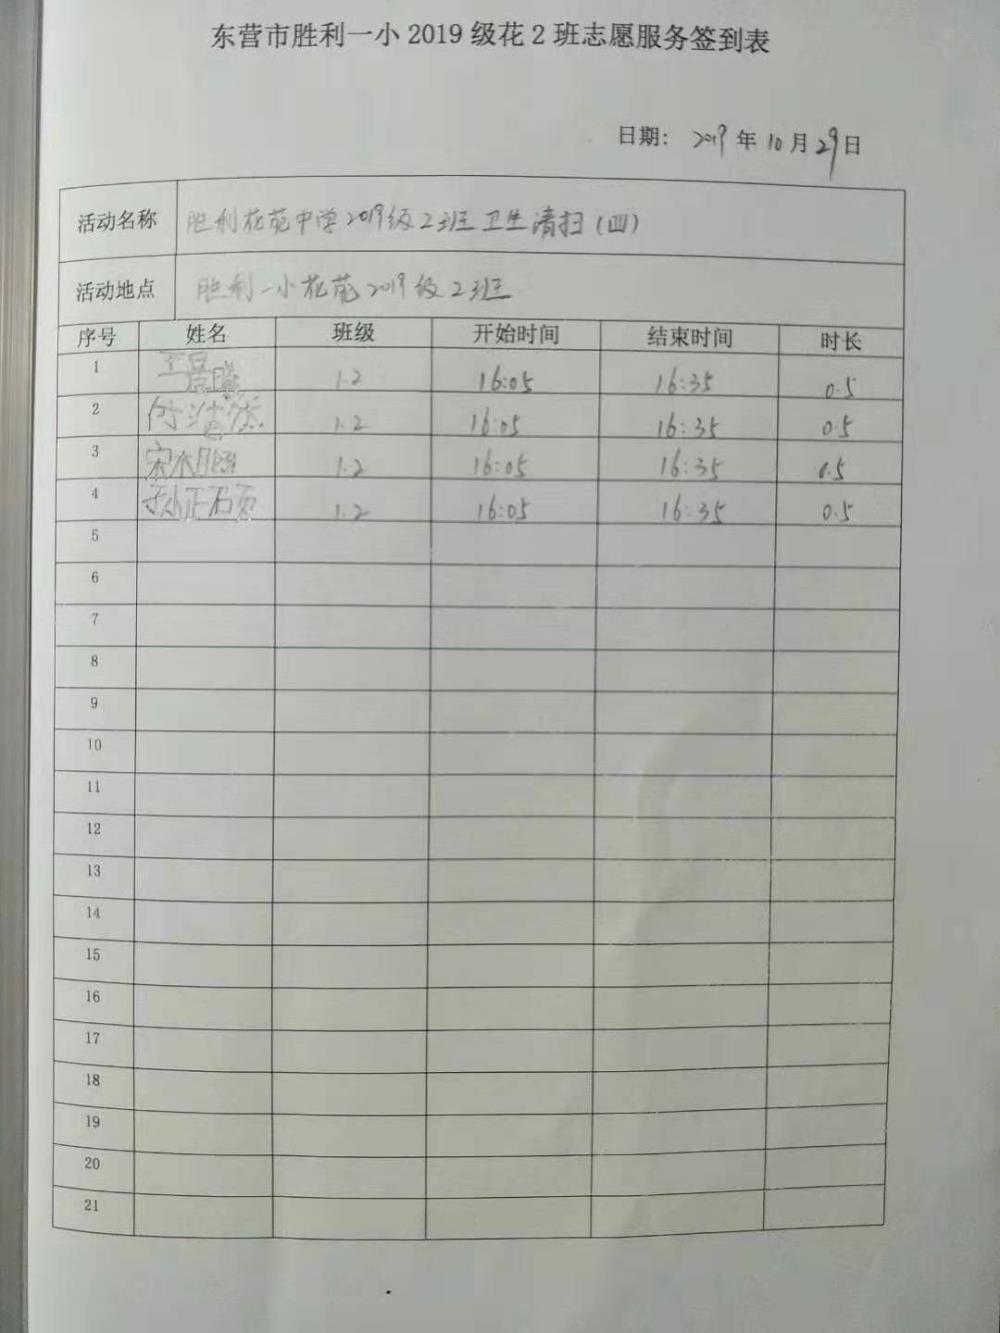 东营市胜利一小2019级花2班志愿服务签到表
日期： 2019年10月29日
活动名称 胜利花苑中学2019级2班卫生清扫（四）
活动地点 胜利一小花苑2019级2班
序号 姓名 班级 开始时间 结束时间 时长
1 1.2 16:05 16:35 0.5
2 1.2 16:05 16:35 0.5
3 1.2 16:05 16:35 0.5
4 1.2 16:05 16:35 0.5
5
6
7
8
9
10
11
12
13
14
15
16
17
18
19
20
21